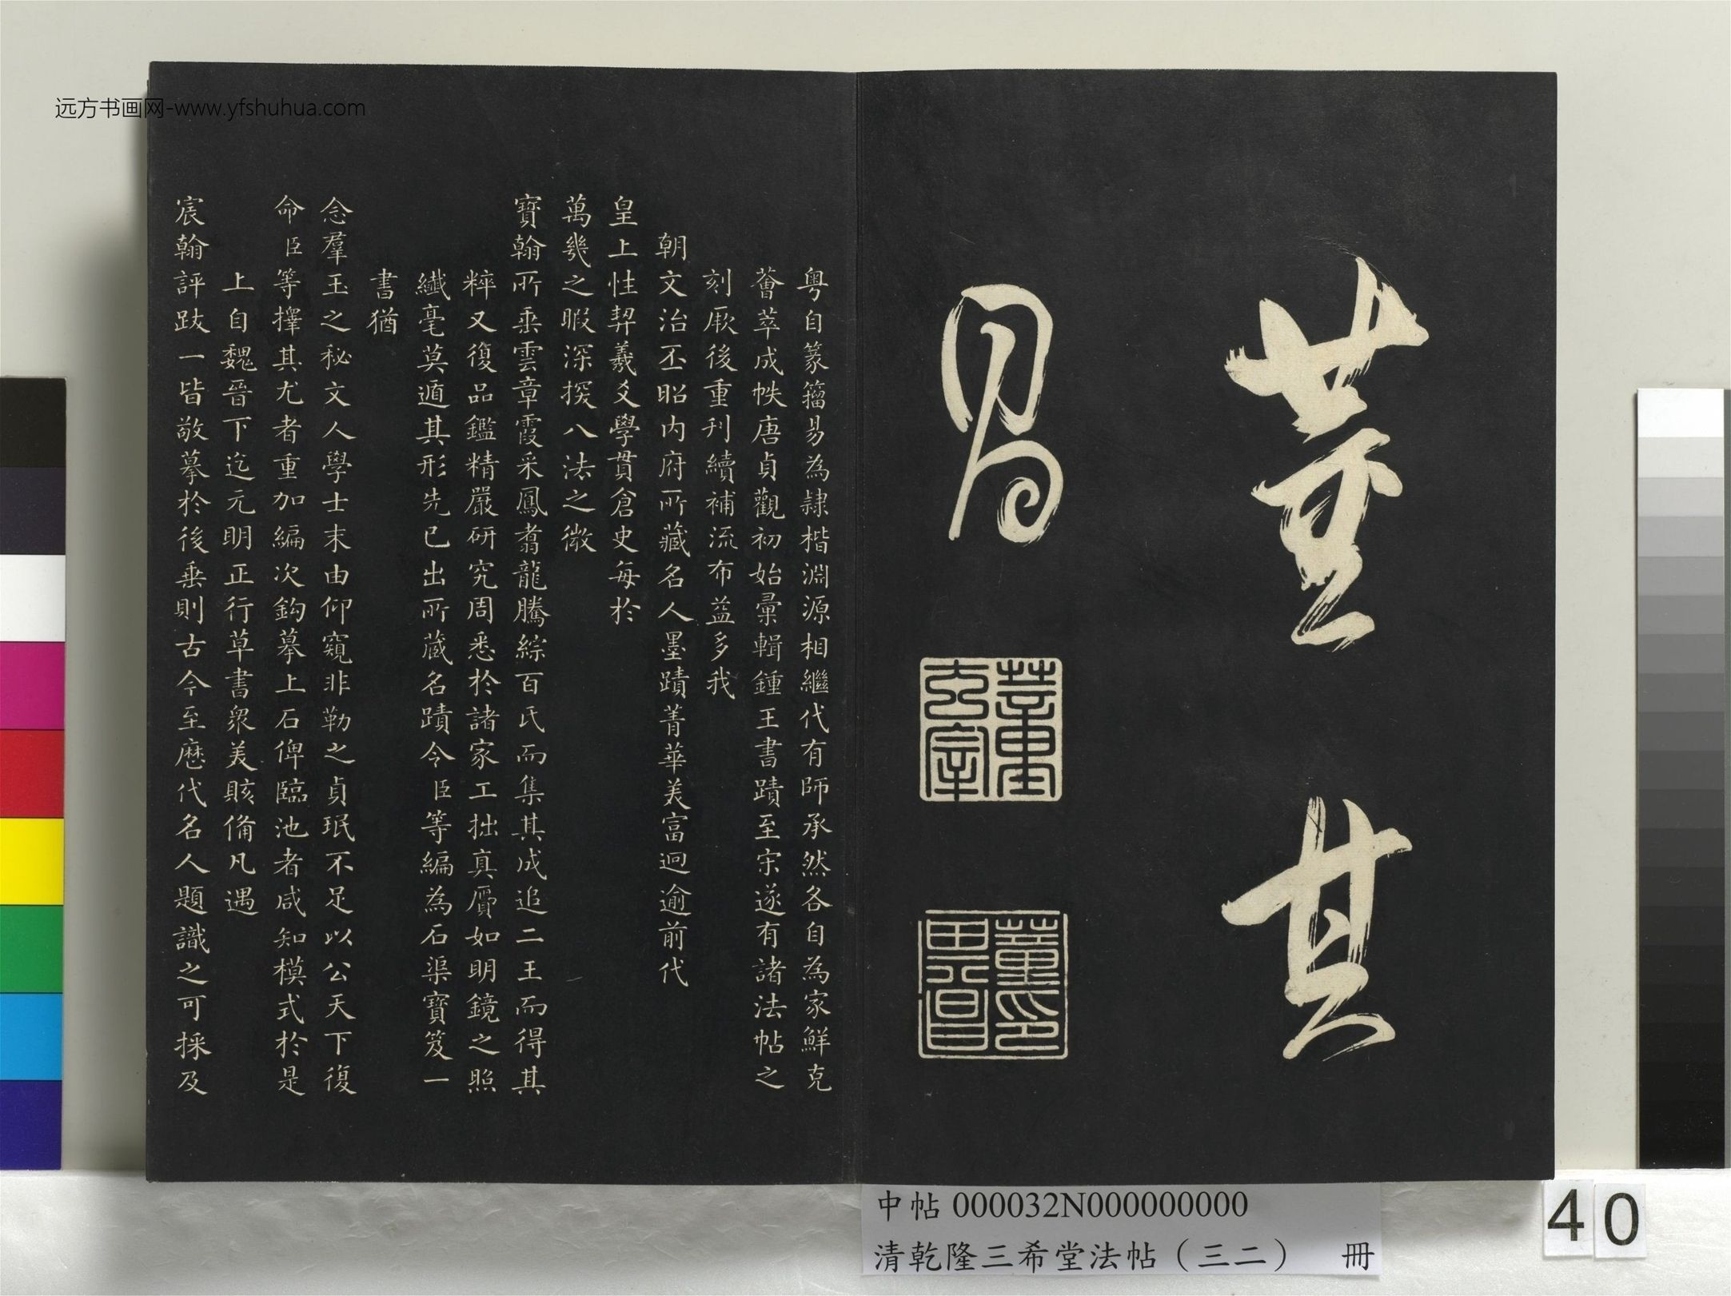 远方书画网-www.yfshuhua.com
董其
昌
董氏玄宰
粵自篆籀易為隸楷淵源相繼代有師承然各自為家鮮克
薈萃成帙唐貞觀初始彙輯鍾王書蹟至宋遂有諸法帖之
刻厥後重刊續補流布益多我
朝文治丕昭內府所藏名人墨蹟菁華美富迥逾前代
皇上性契羲爻學貫倉史每於
萬幾之暇深探八法之微
寶翰所垂雲章霞采鳳翥龍騰綜百氏而集其成追二王而得其
粹又復品鑑精嚴研究周悉於諸家工拙真贋如明鏡之照
纖毫莫遁其形先已出所藏名蹟令臣等編為石渠寶笈一
書猶
念羣玉之秘文人學士末由仰窺非勒之貞珉不足以公天下復
命臣等擇其尤者重加編次鈎摹上石俾臨池者咸知模式於是
上自魏晉下迄元明正行草書衆美賅備凡遇
宸翰評跋一皆敬摹於後垂則古今至歷代名人題識之可採及
中帖 000032N000000000
清乾隆三希堂法帖（三二） 冊
40